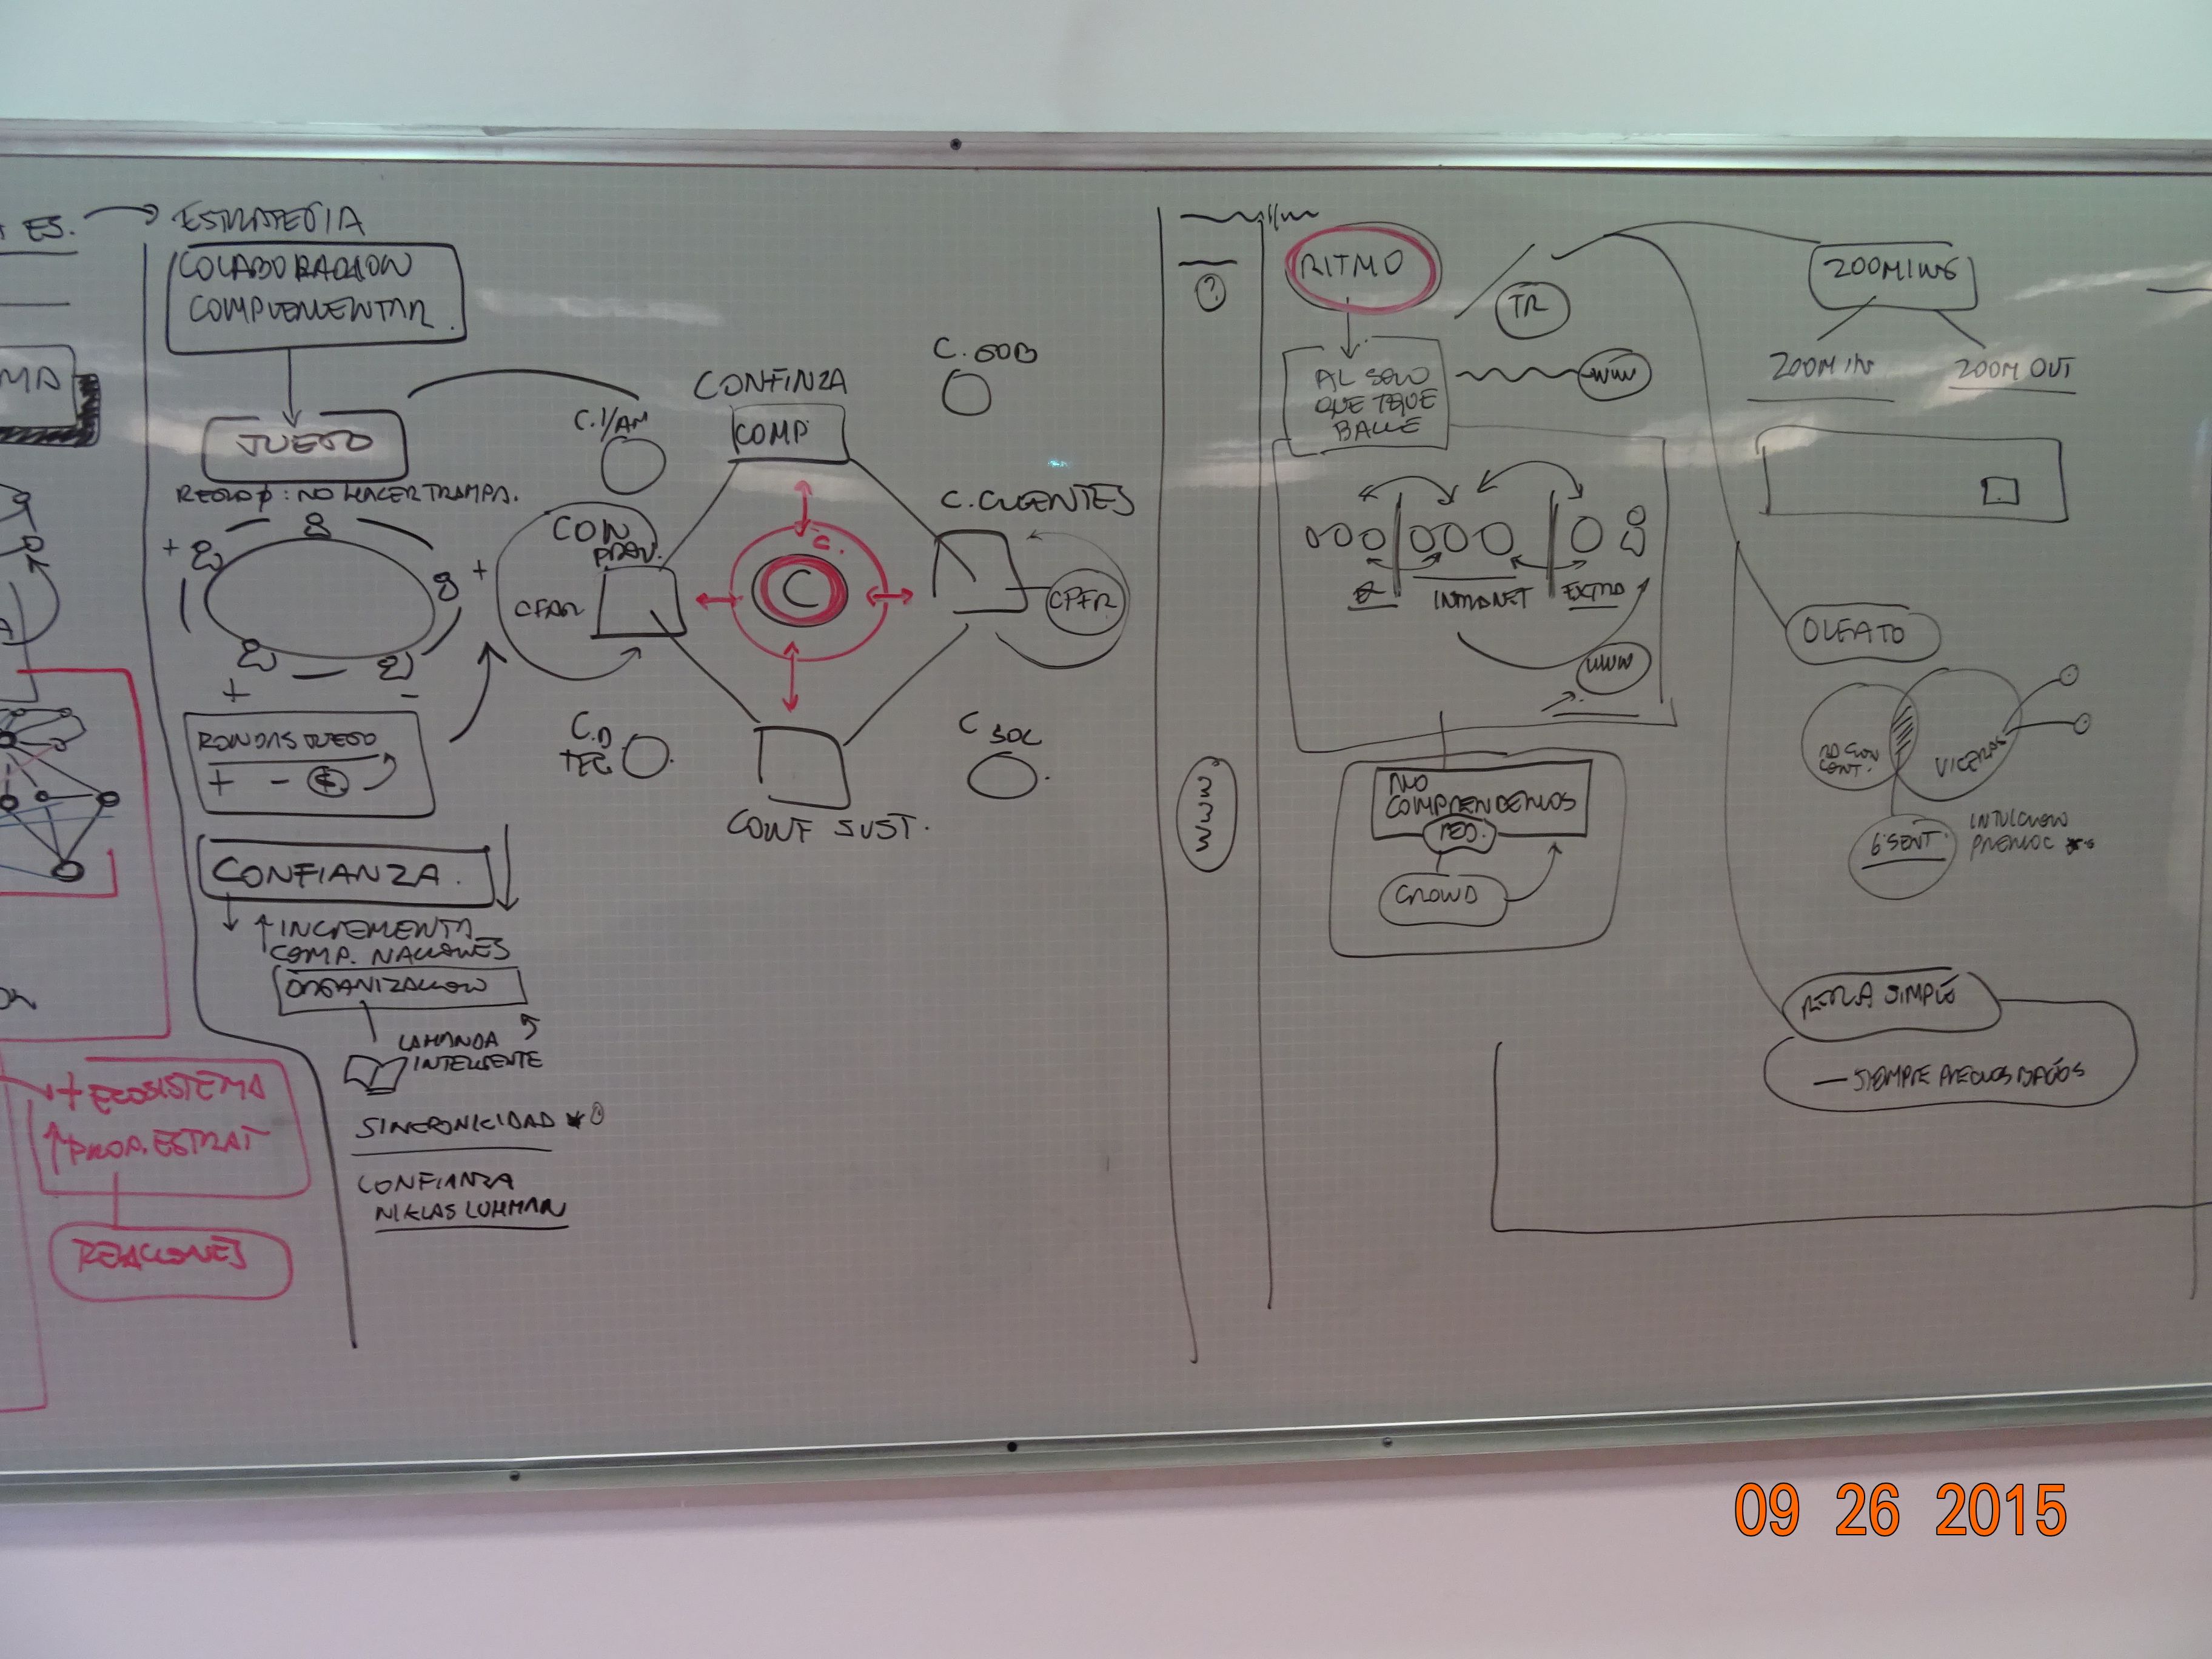 ES.
ESTRATEGIA
COLABORACION
COMPLEMENTAR.
MA
JUEGO
REGLA φ: NO HACER TRAMPA.
+
+
+
-
RONDAS JUEGO
+ - $
CONFIANZA.
↑ INCREMENTA
COMP. NACIONES
ORGANIZACION
LA MANADA
INTELIGENTE
SINCRONICIDAD
CONFIANZA
NIKLAS LUHMAN
+ ECOSISTEMA
↑ PROP. ESTRAT
REACIONES
CONFINZA
COMP.
C. GOB
C. I/AM
CON
PROV.
C. CLIENTES
CPFR
C.
C
C.D
TEC
C SOC
CONF SUST.
?
3
3
3
RITMO
TR
AL SON
QUE TOQUE
BAILE
WWW
INTRANET
EXTRA
WWW
NO
COMPRENDEMOS
NEO.
CROWD
ZOOMING
ZOOM IN
ZOOM OUT
OLFATO
CONT.
VICERAS
6 SENT.
INTUICION
REGLA SIMPLE
— SIEMPRE PRECIOS BAJOS
09 26 2015